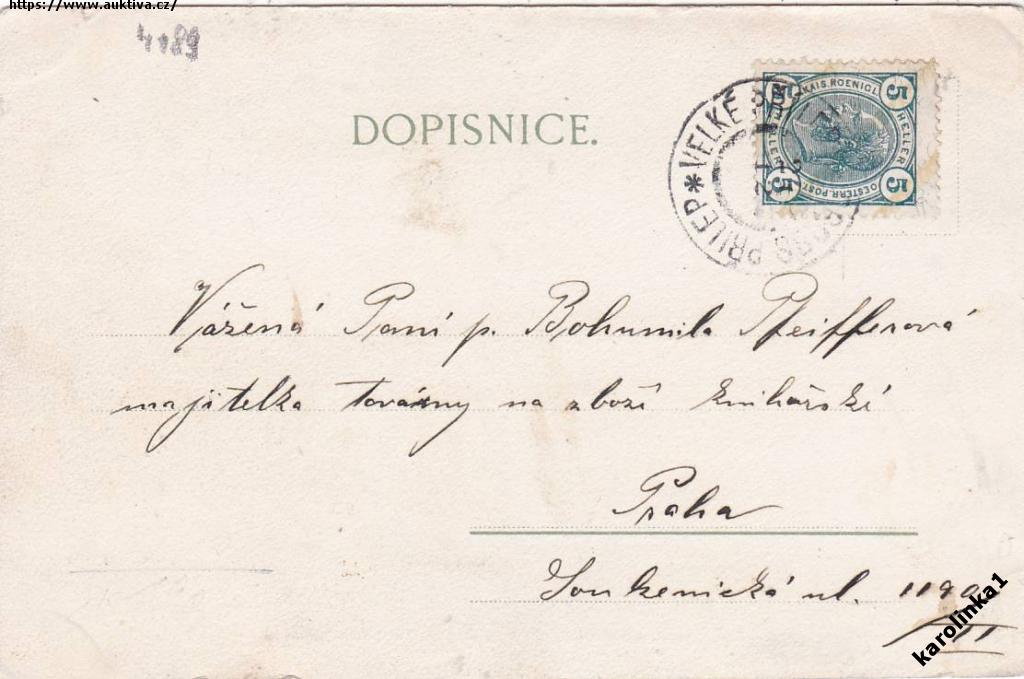 https://www.auktiva.cz/
4189
DOPISNICE.
* VELKÉ PŘILEP
5 KAIS. KOENIGL. 5
HELLER HELLER
5 OESTERR. POST 5
Vážená Paní p. Bohumila Pfeifferová
majitelka továrny na zboží knihařské
Praha
Soukenická ul. 1190
II
karolinka1